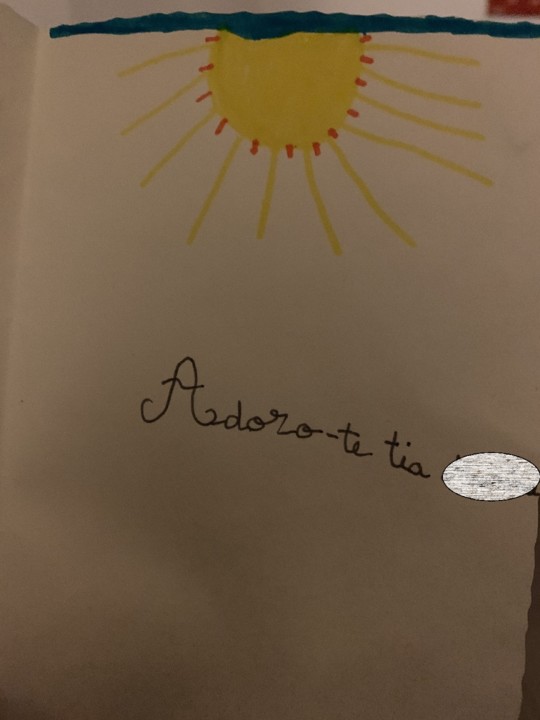 Adoro-te tia